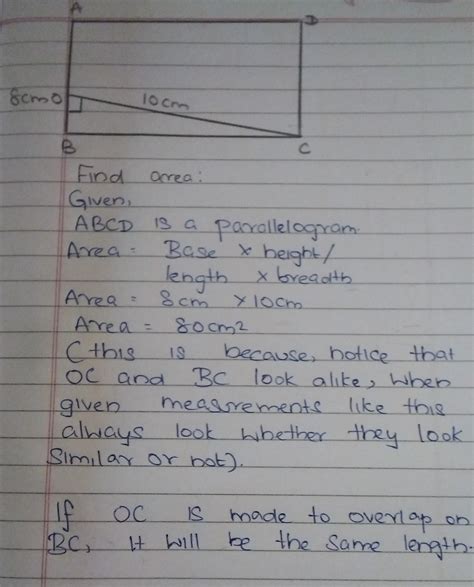 A D
8cm O 10cm
B C
Find area:
Given,
ABCD is a parallelogram.
Area = Base x height/
length x breadth
Area = 8cm x 10cm
Area = 80cm2
(this is because, notice that
OC and BC look alike, when
given measurements like this
always look whether they look
similar or not).
If OC is made to overlap on
BC, it will be the same length.